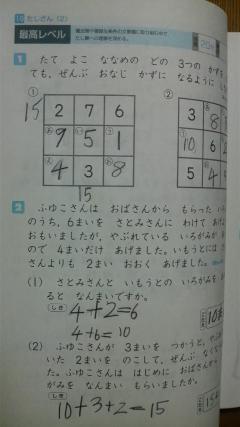 10 たしざん (2)
最高レベル
20
1 たて よこ ななめの どの 3つの かず
ても、ぜんぶ おなじ かずに なるように
①
15 2 7 6
9 5 1
4 3 8
15
②
3 8
10 6 2
5 4
2 ふゆこさんは おばさんから もらった
のうち、6まいを さとみさんに わけて
おもいましたが、やぶれている いろがみが
ので 4まいだけ あげました。いもうとには
さんよりも 2まい おおく あげました。
(1) さとみさんと いもうとの いろがみを
ると なんまいですか。
しき 4+2=6
4+6=10
(2) ふゆこさんが 3まいを つかうと、やぶ
いた 2まいを のこして、ぜんぶ なくな
た。ふゆこさんは はじめに おばさんから
がみを なんまい もらいましたか。
しき 10+3+2=15